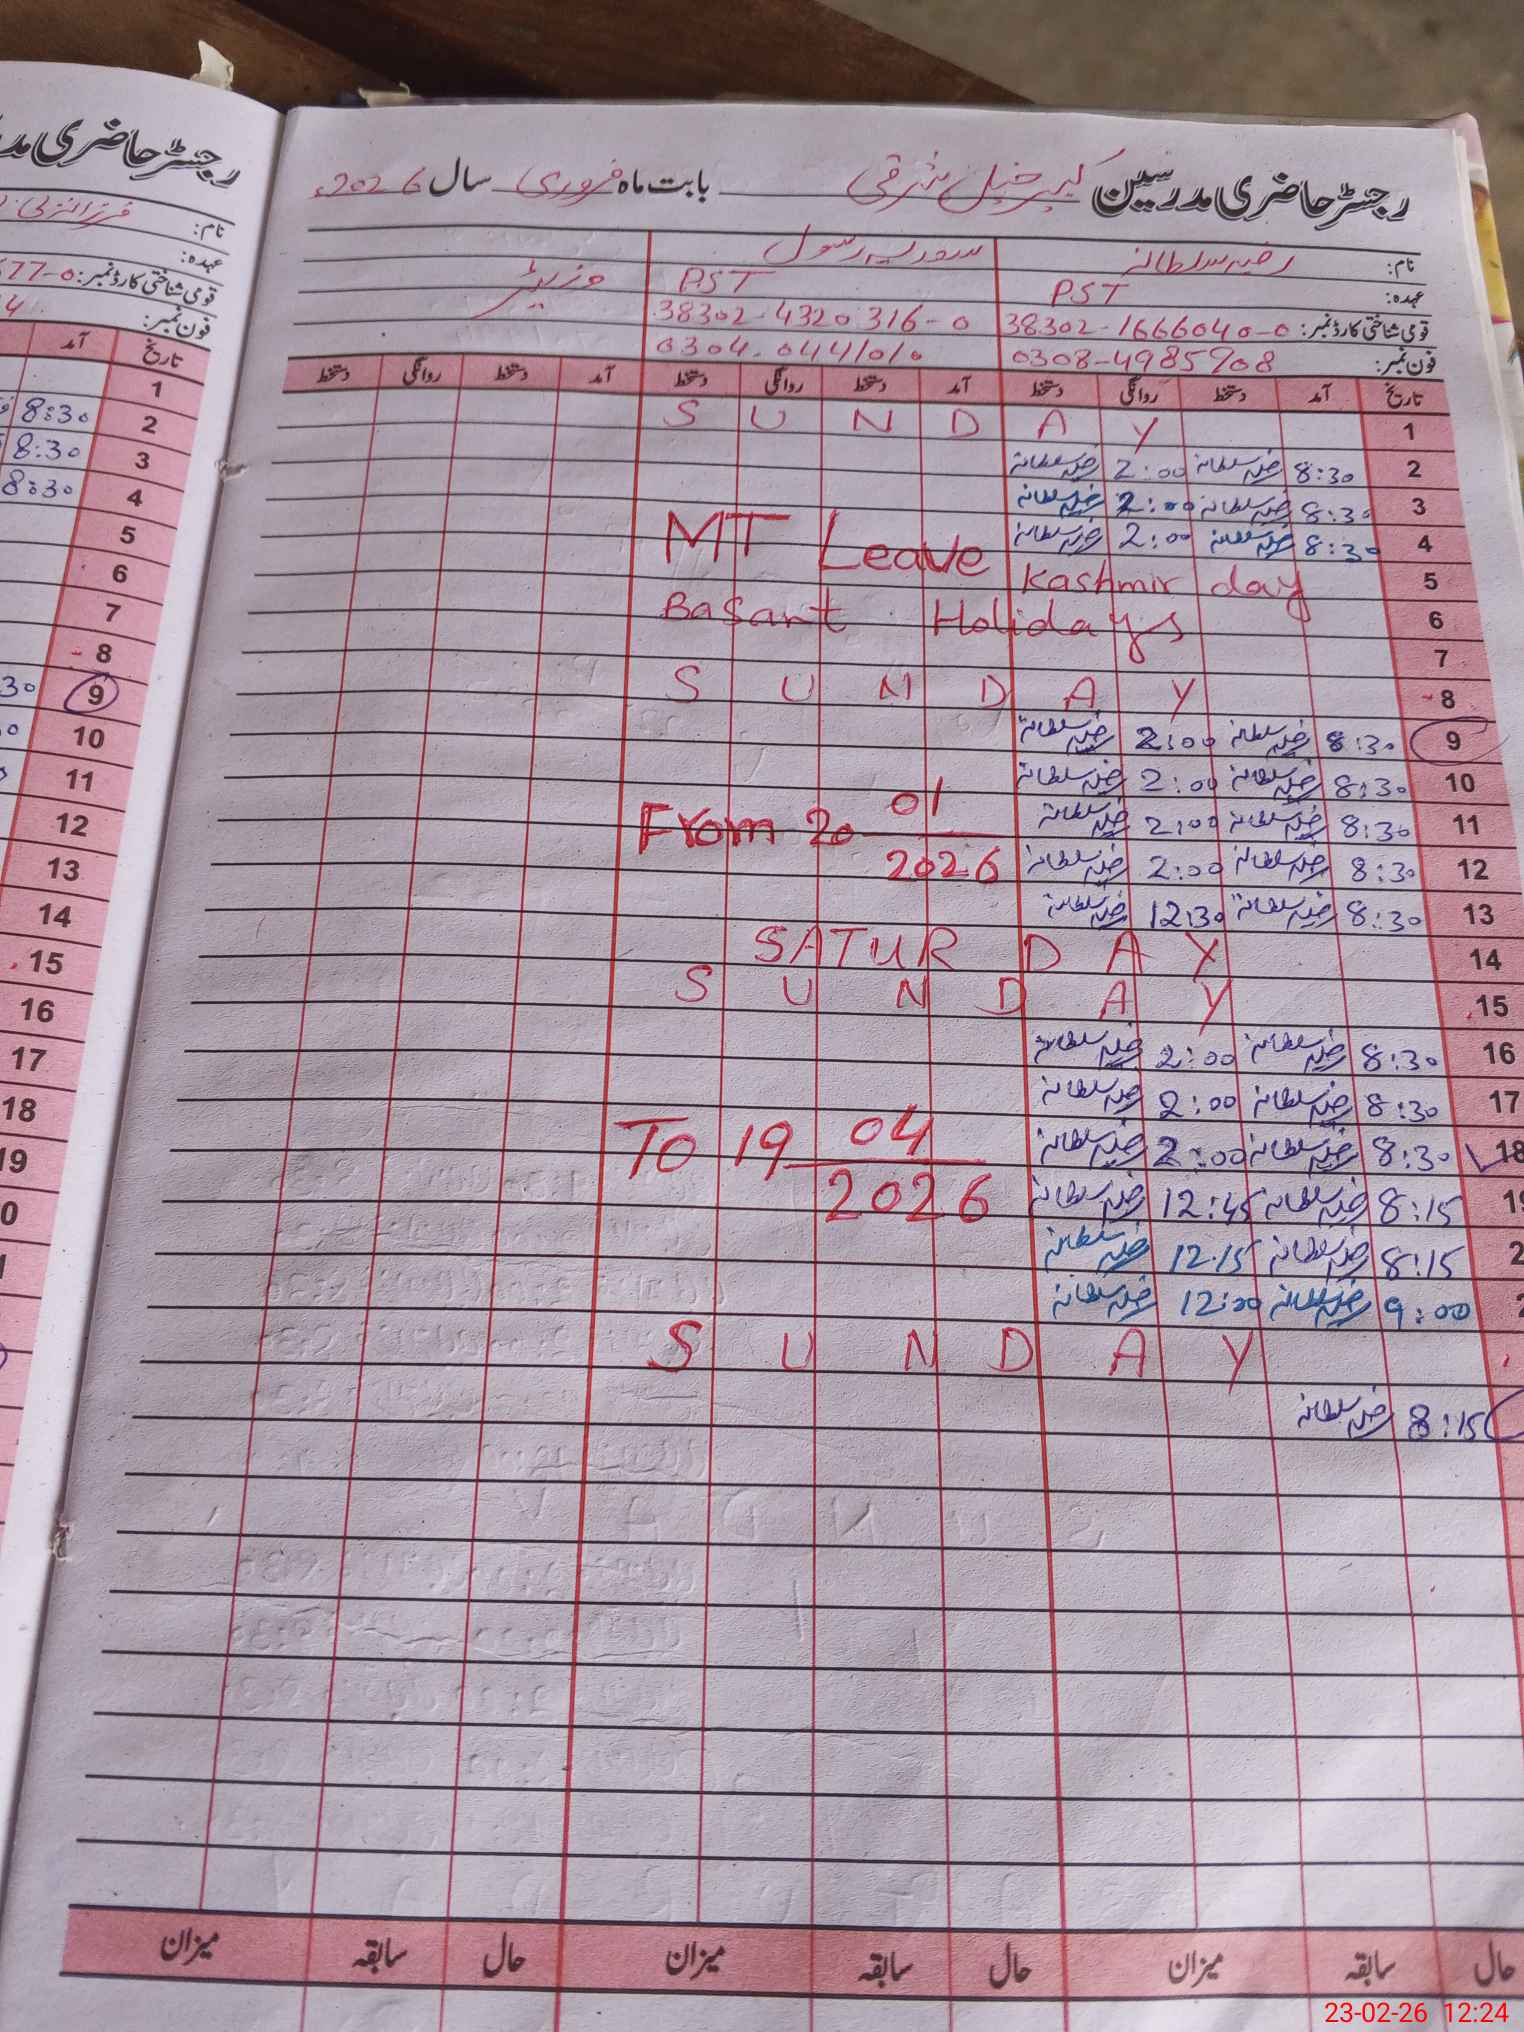 رجسٹر حاضری مدرسین کمبر خیل شرقی بابت ماہ فروری سال 2026ء
نام: رضیہ سلطانہ رسول
عہدہ: PST PST وزیٹر
قومی شناختی کارڈ نمبر: 38302-1666040-0 38302-4320316-0
فون نمبر: 0308-4985908 0304-0441010
تاریخ آمد دستخط روانگی دستخط آمد دستخط روانگی دستخط آمد دستخط روانگی دستخط
1 S U N D A Y
2 8:30 رضیہ سلطانہ 2:00 رضیہ سلطانہ
3 8:30 رضیہ سلطانہ 2:00 رضیہ سلطانہ
4 8:30 رضیہ سلطانہ 2:00 رضیہ سلطانہ
MT Leave
5 Kashmir day
6 Basant Holidays
7
8 S U N D A Y
9 8:30 رضیہ سلطانہ 2:00 رضیہ سلطانہ
10 8:30 رضیہ سلطانہ 2:00 رضیہ سلطانہ
11 8:30 رضیہ سلطانہ 2:00 رضیہ سلطانہ
From 20 01 2026
12 8:30 رضیہ سلطانہ 2:00 رضیہ سلطانہ
13 8:30 رضیہ سلطانہ 12:30 رضیہ سلطانہ
14 SATUR D A Y
15 S U N D A Y
16 8:30 رضیہ سلطانہ 2:00 رضیہ سلطانہ
17 8:30 رضیہ سلطانہ 2:00 رضیہ سلطانہ
18 8:30 رضیہ سلطانہ 2:00 رضیہ سلطانہ
To 19 04 2026
19 8:15 رضیہ سلطانہ 12:45 رضیہ سلطانہ
2 8:15 رضیہ سلطانہ 12:15 رضیہ سلطانہ
2 9:00 رضیہ سلطانہ 12:00 رضیہ سلطانہ
S U N D A Y
8:15 رضیہ سلطانہ
حال سابقہ میزان حال سابقہ میزان حال سابقہ میزان
رجسٹر حاضری مدر
نام:
عہدہ:
قومی شناختی کارڈ نمبر: 677-0
فون نمبر: 4
تاریخ آمد
1
2 8:30
3 8:30
4 8:30
5
6
7
8
9 30
10
11
12
13
14
15
16
17
18
19
0
1
23-02-26 12:24